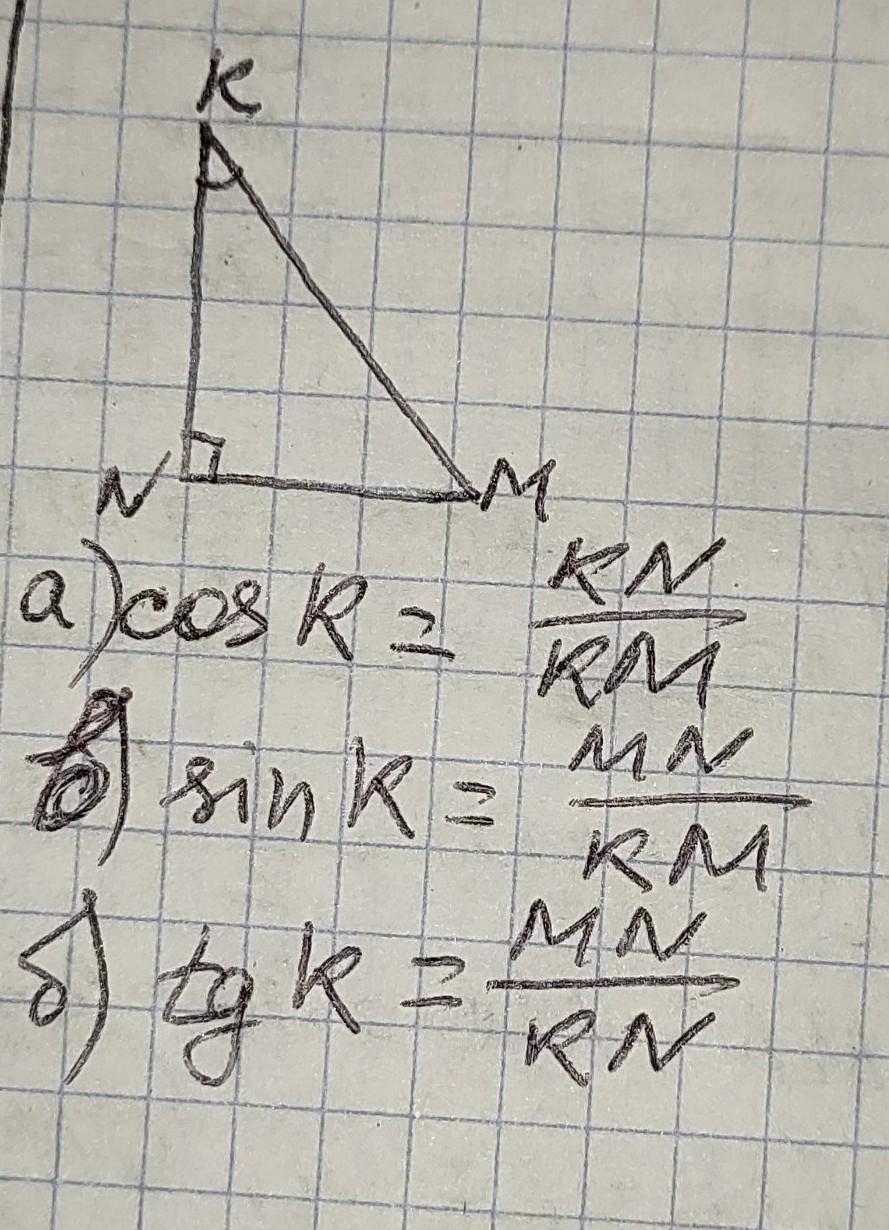 K
N M
а) cos K = KN/KM
в) sin K = MN/KM
б) tg K = MN/KN